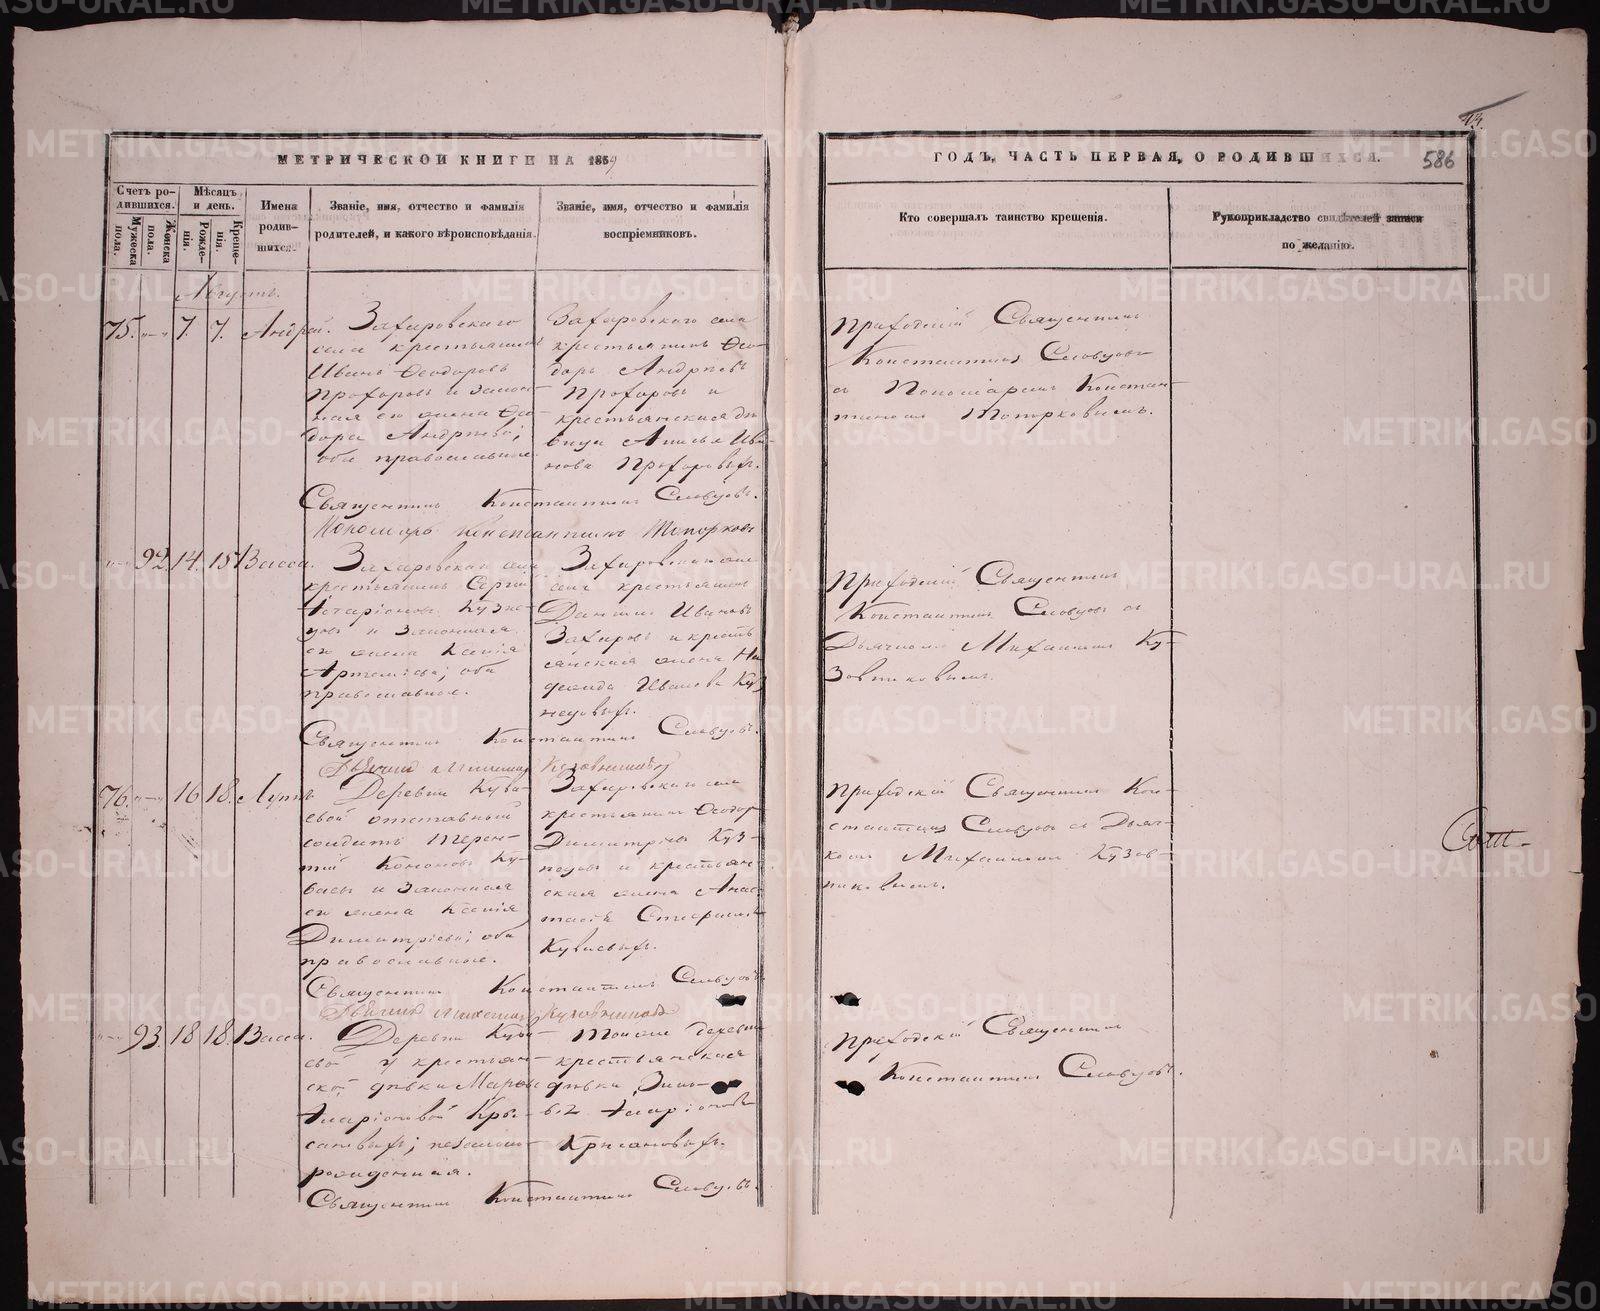 МЕТРИЧЕСКОЙ КНИГИ НА 1859
ГОДЪ, ЧАСТЬ ПЕРВАЯ, О РОДИВШИХСЯ.
586
Счетъ родившихся.
Мужеска пола.
Женска пола.
Мѣсяцъ и день.
Рожденія.
Крещенія.
Имена родившихся.
Званіе, имя, отчество и фамилія
родителей, и какого вѣроисповѣданія.
Званіе, имя, отчество и фамилія
воспріемниковъ.
Кто совершалъ таинство крещенія.
Рукоприкладство свидѣтелей записи
по желанію.
Августъ.
75. 7. 7. Андрей.
Захаровскаго
села крестьянинъ
Иванъ Ѳеодоровъ
Прохоровъ и закон-
ная его жена Ѳео-
дора Андреева;
оба православные.
Захаровскаго села
крестьянинъ Ѳео-
доръ Андреевъ
Прохоровъ и
крестьянская дѣ
вица Анисья Ива-
нова Прохоровыхъ.
Приходскій Священникъ
Константинъ Словцовъ
съ Пономаремъ Констан-
тиномъ Топорковымъ.
Священникъ Константинъ Словцовъ.
Пономарь Константинъ Топорковъ
92. 14. 15. Васса.
крестьянинъ Сергій
Иларіоновъ Кузне-
цовъ и законная
его жена Ксенія
Артеміева; оба
православные.
села крестьянинъ
Даніилъ Ивановъ
Захаровъ и кресть
янская жена На
дежда Иванова Куз
нецовыхъ.
Приходскій Священникъ
Константинъ Словцовъ съ
Дьячкомъ Михаиломъ Ку-
зовниковымъ.
Священникъ Константинъ Словцовъ.
Дьячекъ Михаилъ Кузовниковъ
76. 16. 18. Луппъ
Деревни Кува-
евой отставный
солдатъ Терен-
тій Кононовъ Ку-
ваевъ и законная
его жена Ксенія
Димитріева; оба
православные.
Захаровскаго села
крестьянинъ Ѳеодоръ
Димитріевъ Куз-
нецовъ и крестьян
ская жена Анас-
тасія
Куваевыхъ.
Приходскій Священникъ Кон-
стантинъ Словцовъ съ Дьяч-
комъ Михаиломъ Кузов-
никовымъ.
Священникъ Константинъ Словцовъ
Дьячекъ Михаилъ Кузовниковъ
93. 18. 18. Васса.
Деревни Кува-
евой у крестьян-
ской дѣвки Марѳы
Иларіоновой Кри-
сановыхъ; незаконно-
рожденная.
Той же деревни
крестьянская
дѣвка Зино-
вья Иларіонова
Крисановыхъ.
Приходскій Священникъ
Константинъ Словцовъ.
Священникъ Константинъ Словцовъ.
METRIKI.GASO-URAL.RU